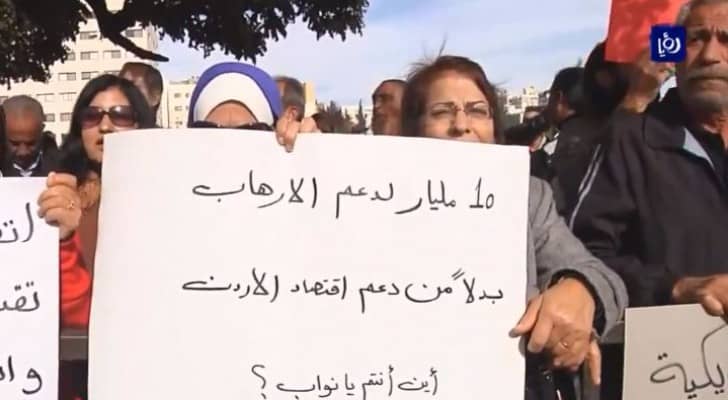 رؤيا
10 مليار لدعم الارهاب
بدلاً من دعم اقتصاد الاردن
أين أنتم يا نواب ؟